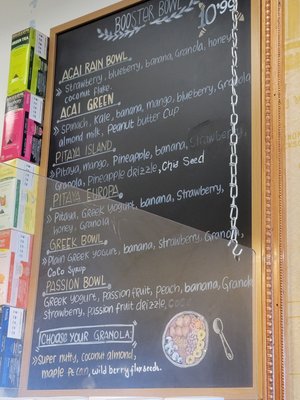 BOOSTER BOWL
10.99
ACAI RAIN BOWL
Strawberry, blueberry, banana, Granola, honey
coconut flake.
ACAI GREEN
Spinach, Kale, banana, mango, blueberry, Granola
almond milk, Peanut butter Cup
PITAYA ISLAND
Pitaya, mango, Pineapple, banana, Strawberry,
Granola, Pineapple drizzle, Chia Seed
PITAYA EUROPA
Pitaya, Greek Yogurt, banana, Strawberry,
honey, Granola
GREEK BOWL
Plain Greek yogurt, banana, strawberry, Granola,
PASSION BOWL
Greek Yogurt, Passion fruit, Peach, banana, Granola
strawberry, Passion fruit drizzle,
CHOOSE YOUR GRANOLA
Super nutty, coconut almond,
maple pecan, wild berry flaxseeds.